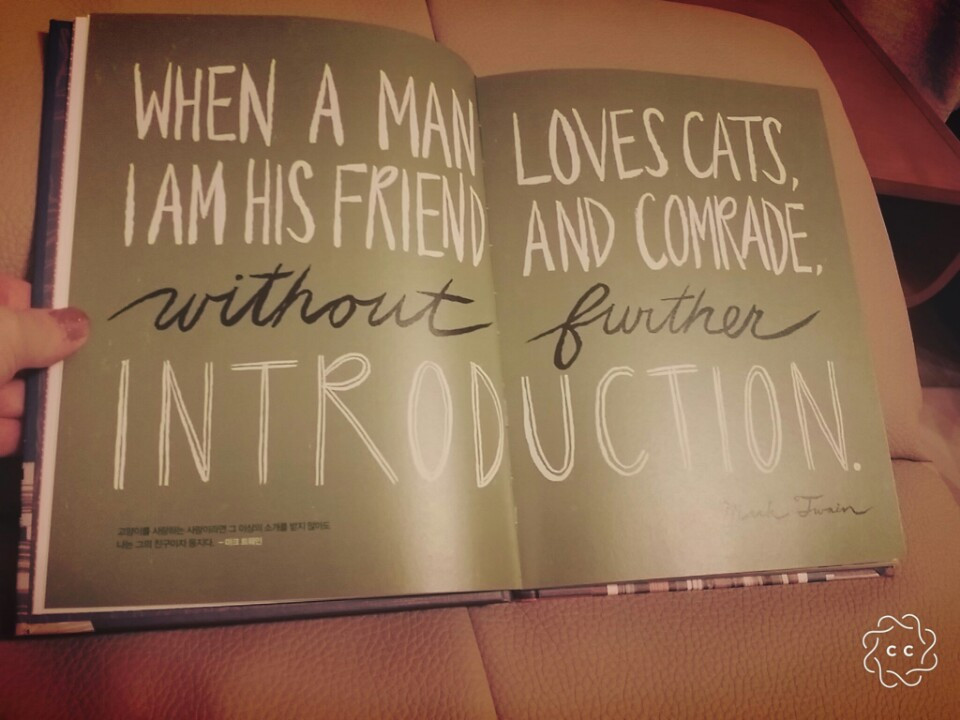 WHEN A MAN LOVES CATS,
I AM HIS FRIEND AND COMRADE,
without further
INTRODUCTION.
Mark Twain
고양이를 사랑하는 사람이라면 그 이상의 소개를 받지 않아도
나는 그의 친구이자 동지다. – 마크 트웨인
CC